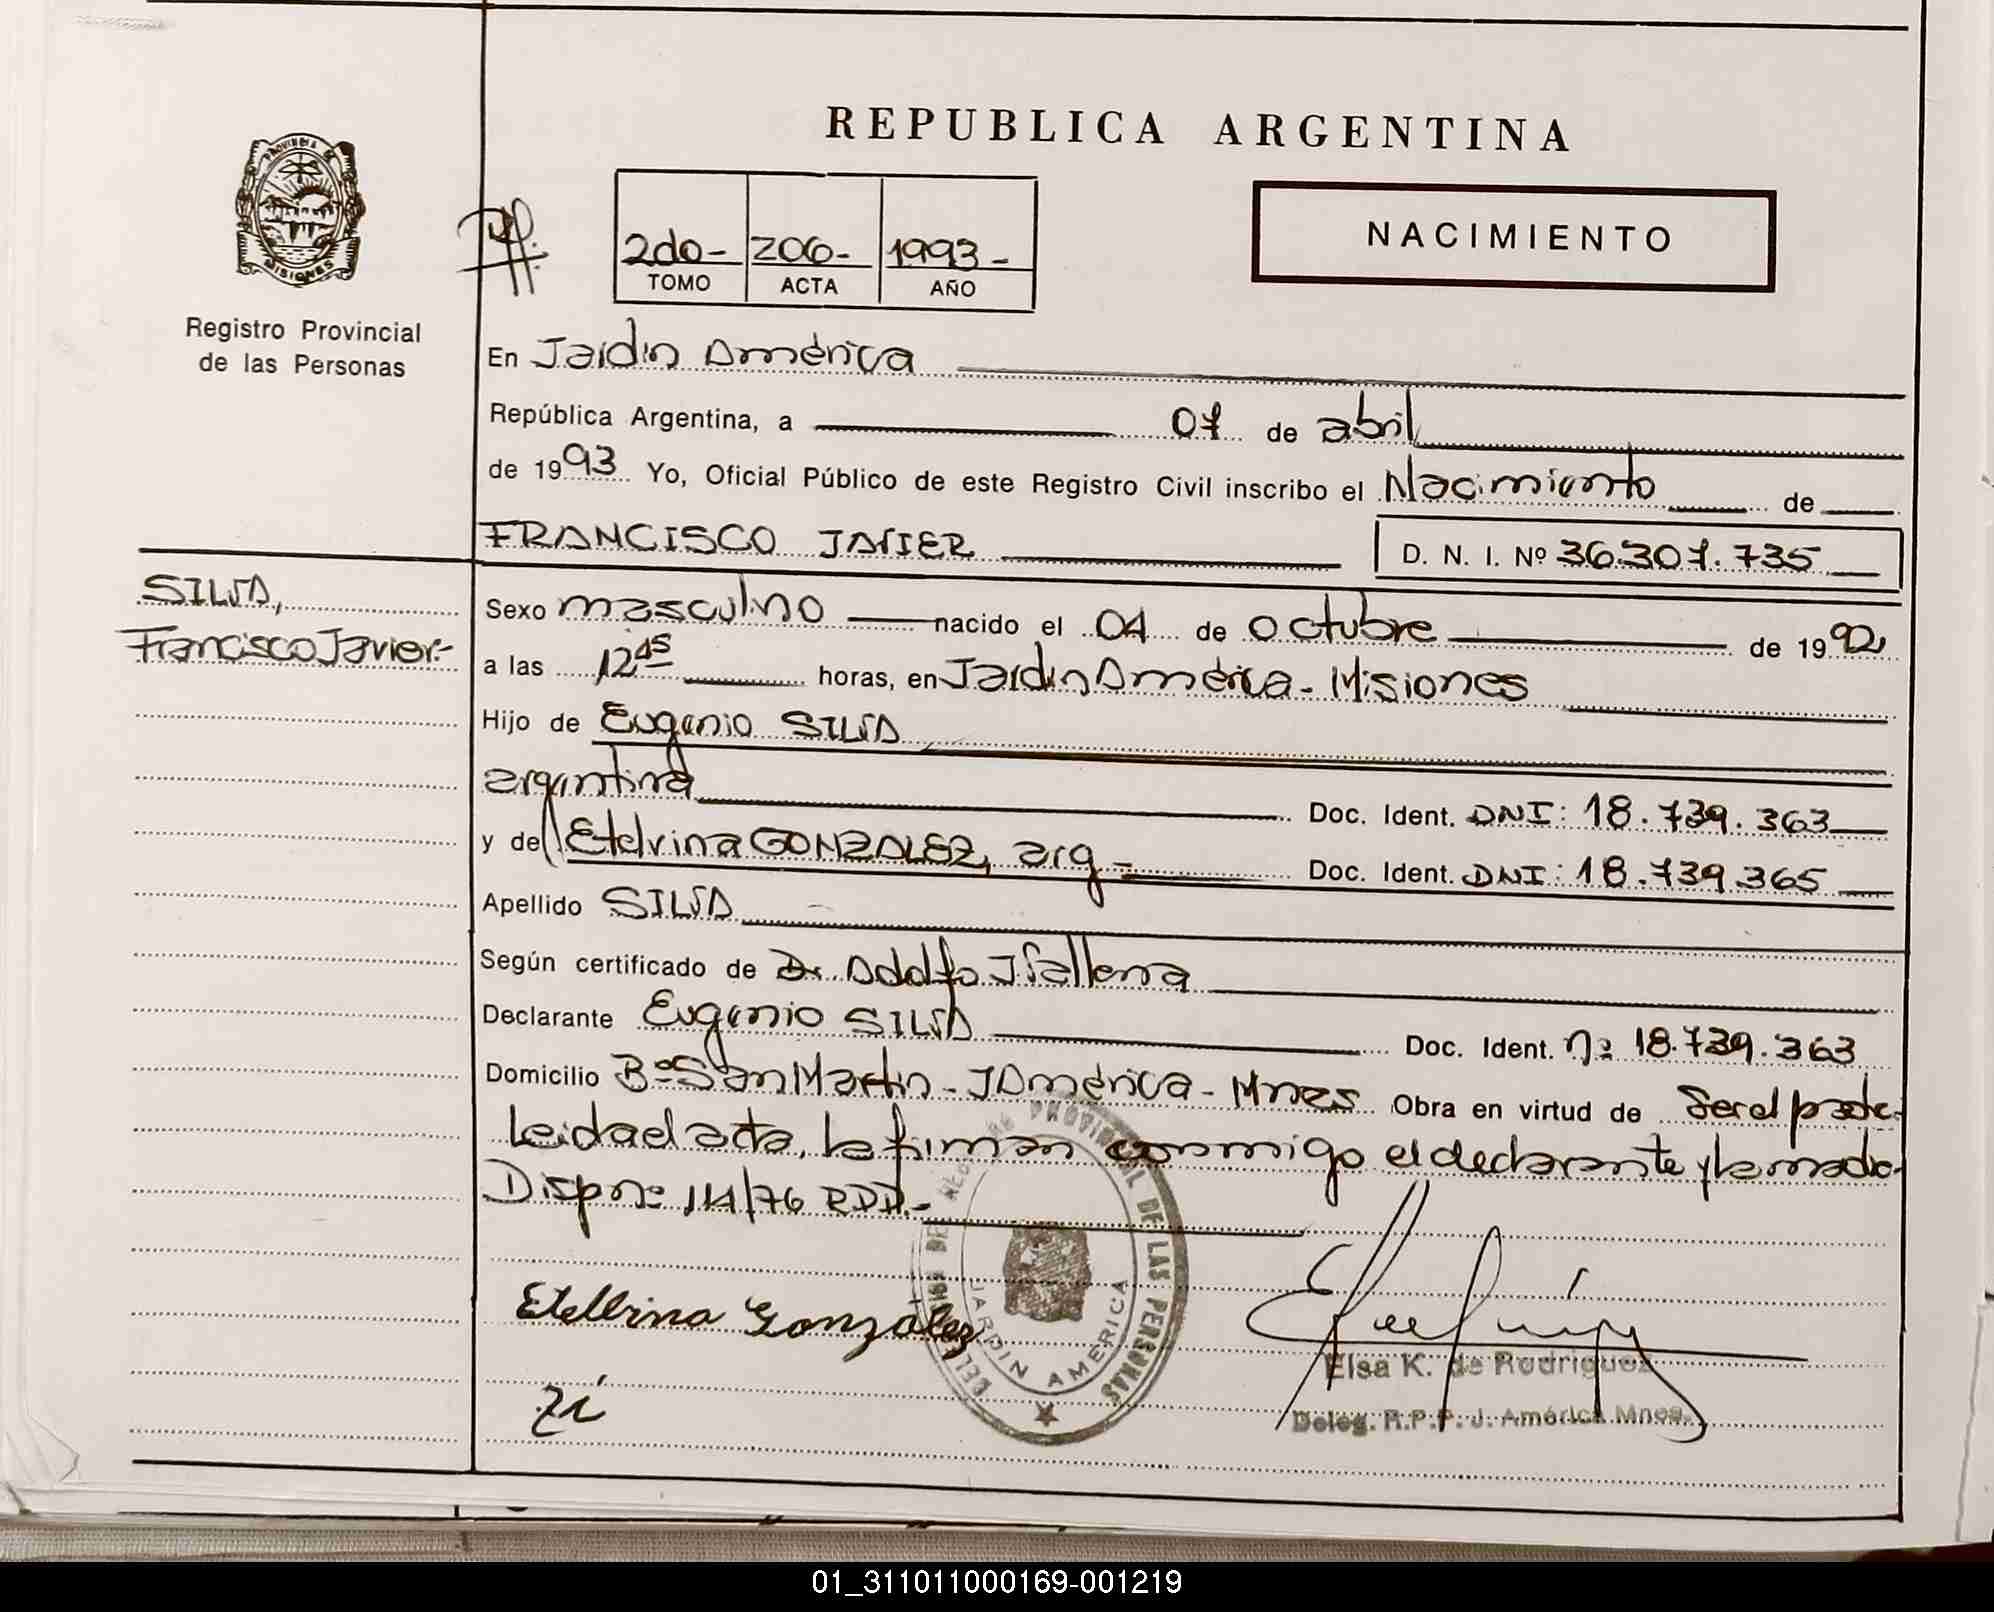 REPUBLICA ARGENTINA
PROVINCIA DE
MISIONES
Registro Provincial
de las Personas
2do- 206- 1993-
TOMO ACTA AÑO
NACIMIENTO
En Jardin América
República Argentina, a 07 de abril
de 1993 Yo, Oficial Público de este Registro Civil inscribo el Nacimiento de
FRANCISCO JAVIER D. N. I. Nº 36.307.735
SILVA,
Francisco Javier.-
Sexo masculino nacido el 04 de octubre de 1992
a las 12 45 horas, en Jardin América - Misiones
Hijo de Eugenio SILVA
argentina Doc. Ident. DNI: 18.739.363
y de Etelvina GONZALEZ, arg - Doc. Ident. DNI: 18.739.365
Apellido SILVA
Según certificado de Dr. Adolfo J.
Declarante Eugenio SILVA Doc. Ident. nº 18.739.363
Domicilio Bº San Martin - J América - Mnes Obra en virtud de Ser el padre
Leida el acta, la firman conmigo el declarante y la madre
Dispnº 114/76 RPP.-
DELEGACION PROVINCIAL DE LAS PERSONAS
JARDIN AMERICA
Etelbina Gonzalez
Elsa K. de Rodriguez
Deleg. R.P.P. J. América Mnes.
01_311011000169-001219